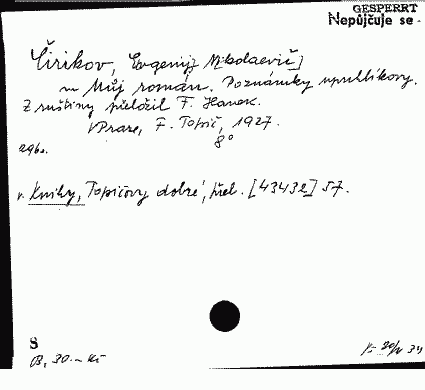 GESPERRT
Nepůjčuje se -
Čirikov, Evgenij Nikolaevič]
Můj román. Poznámky uprchlíkovy.
Z ruštiny přeložil F. Hanek.
V Praze, F. Topič, 1927.
8°
296 s.
v. Knihy, Topičovy dobré, přel. [43432] 57.
S
B, 30.- Kč